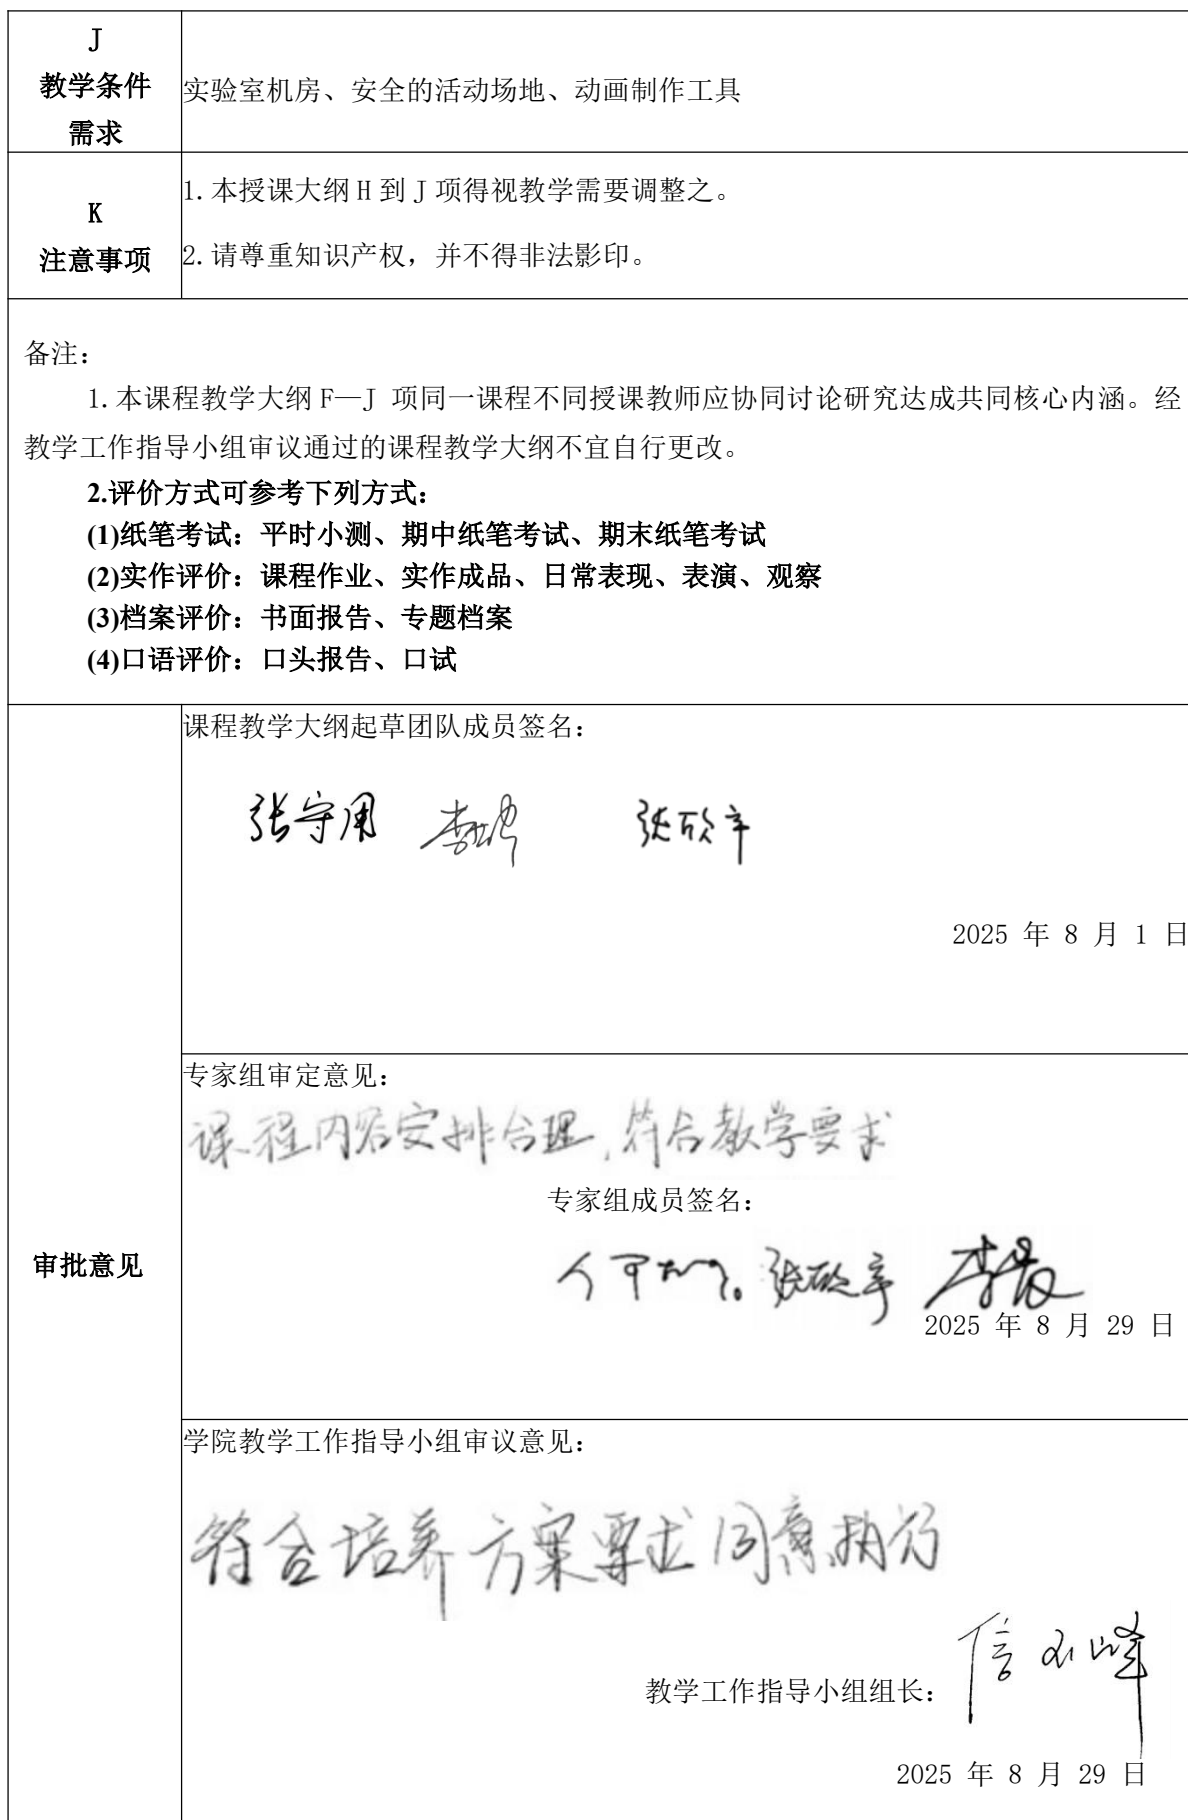 J
教学条件
需求
实验室机房、安全的活动场地、动画制作工具
K
注意事项
1.本授课大纲 H 到 J 项得视教学需要调整之。
2.请尊重知识产权，并不得非法影印。
备注：
1.本课程教学大纲 F—J 项同一课程不同授课教师应协同讨论研究达成共同核心内涵。经
教学工作指导小组审议通过的课程教学大纲不宜自行更改。
2.评价方式可参考下列方式：
(1)纸笔考试：平时小测、期中纸笔考试、期末纸笔考试
(2)实作评价：课程作业、实作成品、日常表现、表演、观察
(3)档案评价：书面报告、专题档案
(4)口语评价：口头报告、口试
审批意见
课程教学大纲起草团队成员签名：
张守用 张欣宇
2025 年 8 月 1 日
专家组审定意见：
课程内容安排合理,符合教学要求
专家组成员签名：
2025 年 8 月 29 日
学院教学工作指导小组审议意见：
符合培养方案要求同意执行
教学工作指导小组组长：
2025 年 8 月 29 日